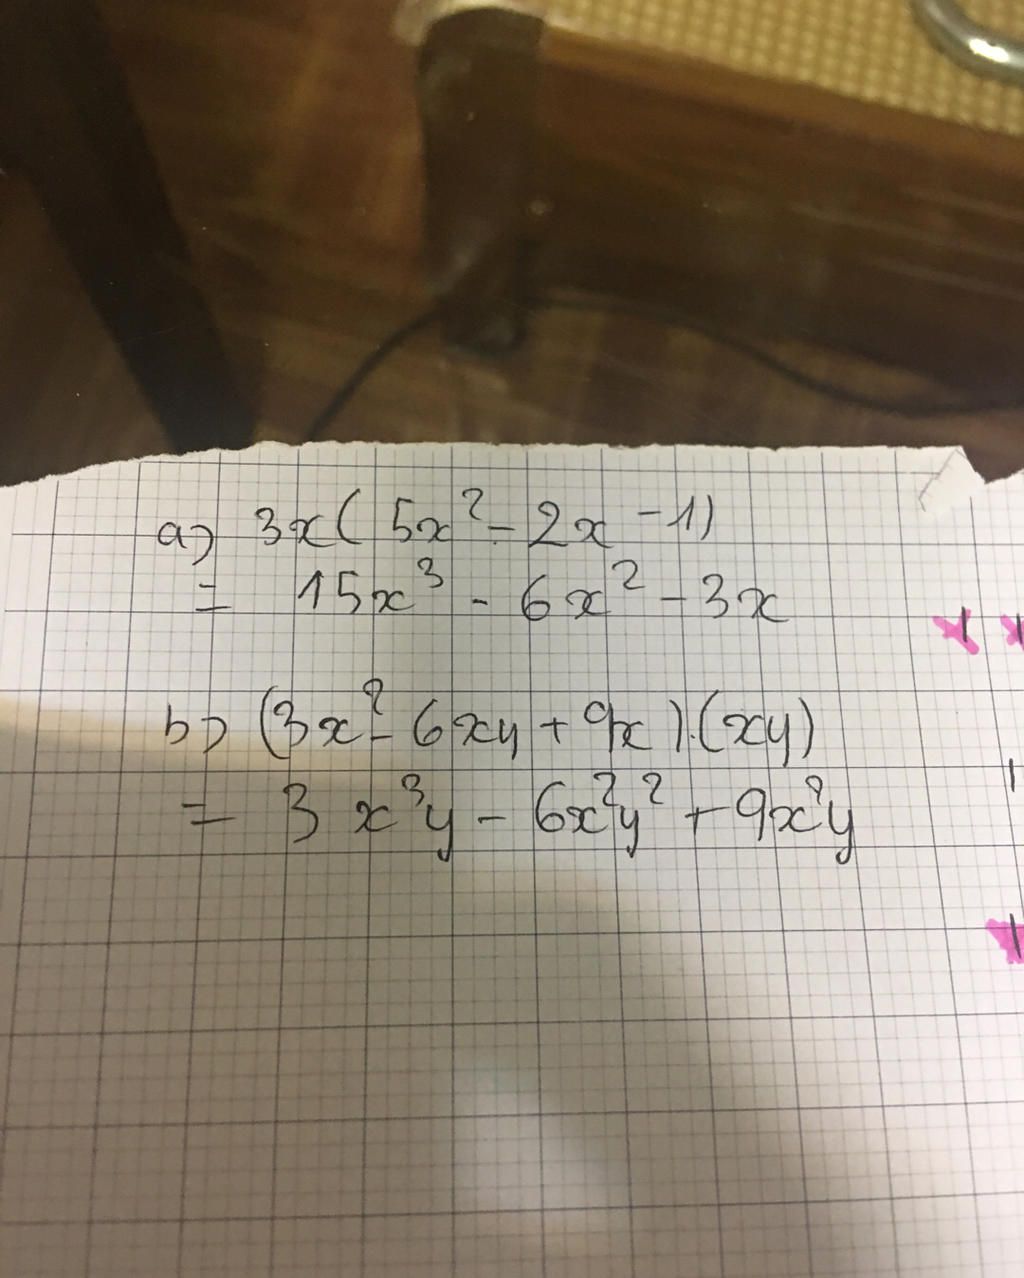 a) 3x(5x² - 2x - 1)
= 15x³ - 6x² - 3x
b) (3x² - 6xy + 9x).(xy)
= 3x³y - 6x²y² + 9x²y